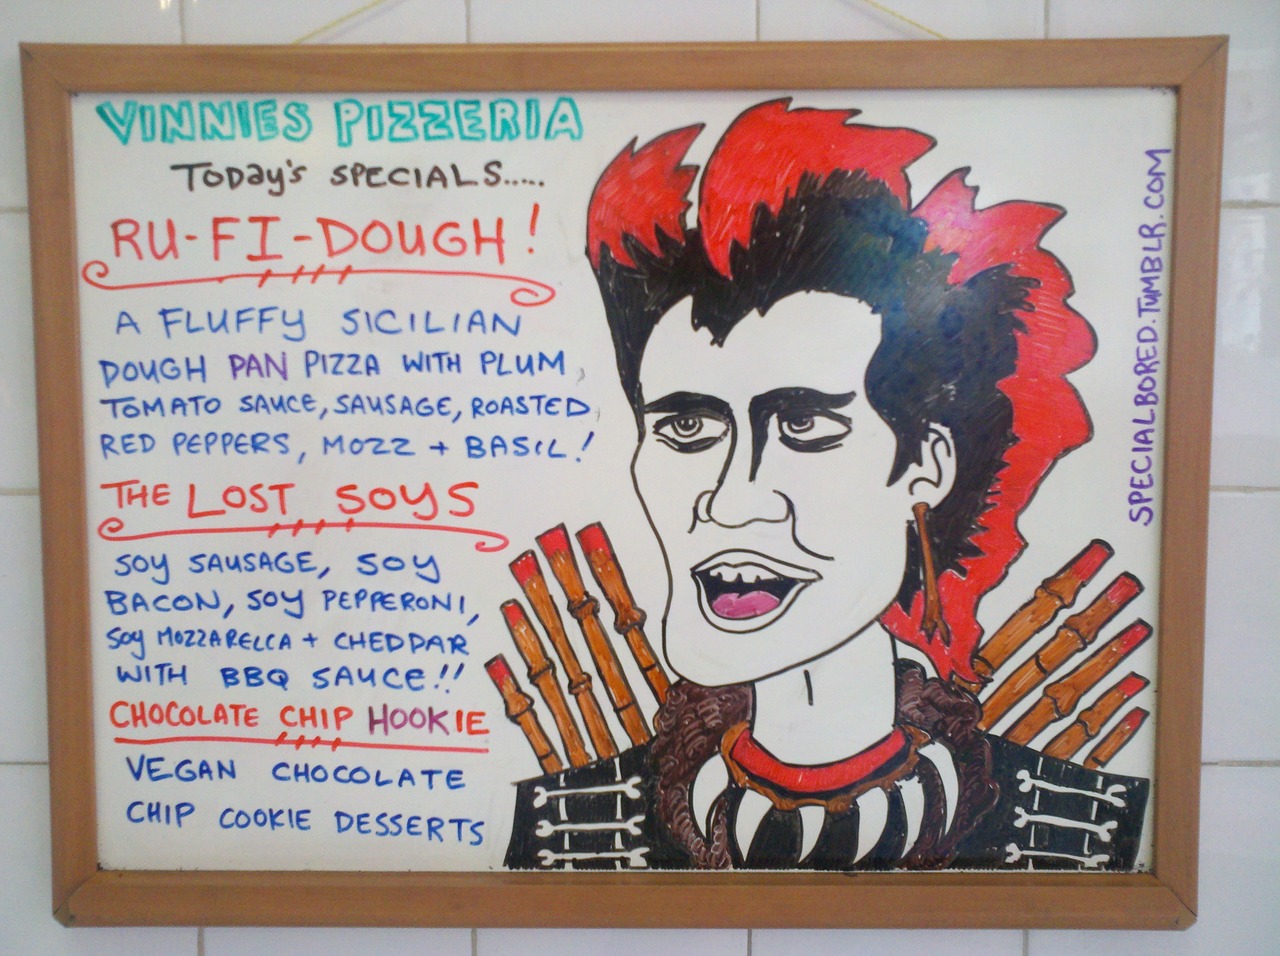 VINNIES PIZZERIA
TODAY'S SPECIALS.....
RU-FI-DOUGH!
A FLUFFY SICILIAN
DOUGH PAN PIZZA WITH PLUM
TOMATO SAUCE, SAUSAGE, ROASTED
RED PEPPERS, MOZZ + BASIL!
THE LOST SOYS
SOY SAUSAGE, SOY
BACON, SOY PEPPERONI,
SOY MOZZARELLA + CHEDDAR
WITH BBQ SAUCE!!
CHOCOLATE CHIP HOOKIE
VEGAN CHOCOLATE
CHIP COOKIE DESSERTS
SPECIALBORED.TUMBLR.COM